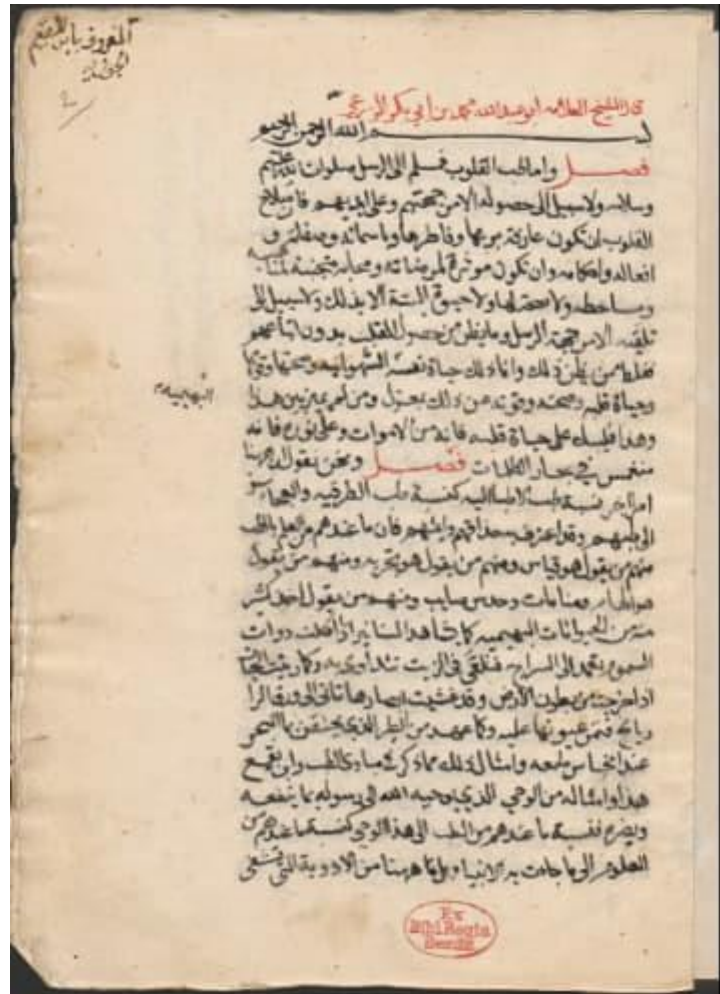 المعروف بابن القيم
الجوزيه
قال الشيخ العلامه ابو عبد الله محمد بن ابي بكر الزرعي
بسم الله الرحمن الرحيم
فصل واما طب القلوب فمسلم الى الرسل صلوات الله عليهم
وسلامه ولا سبيل الى حصوله الا من جهتهم وعلى ايديهم فان صلاح
القلوب ان تكون عارفة بربها وفاطرها وباسمائه وصفاته و
افعاله واحكامه وان تكون موثرة لمرضاته ومحابه متجنبة لمناهيه
ومساخطه ولا صحة لها ولا حيوة البتة الا بذلك ولا سبيل الى
تلقيه الا من جهة الرسل وما يظن من حصول للقلب بدون اتباعهم
فغلط ممن يظن ذلك وانما ذلك حياة نفسه الشهوانيه وصحتها وقوتها
البهيميه
وحياة قلبه وصحته وقوته عن ذلك بمعزل ومن لم يميز بين هذا
وهذا فليبك على حياة قلبه فانه من الاموات وعلى نوره فانه
منغمس في بحار الظلمات فصل ونحن نقول ان ههنا
امرا اخر نسبة طب الاطبا اليه كنسبة طب الطرقيه والعجايز
الى طبهم وقد اعترف به حذاقهم وايمتهم فان ما عندهم من العلم بالطب
منهم من يقول هو قياس ومنهم من يقول هو تجربه ومنهم من يقول
هو الهام ومنامات وحدس صايب ومنهم من يقول اخذ كثير
منه من الحيوانات البهيميه كما يشاهد السنانير اذا اكلت ذوات
السموم تعمد الى السراج فتلقي في الزيت تتداوى به وكما ريت الحيات
اذا خرجت من بطون الارض وقد غشيت ابصارها تاتي الى ورق الرا
زيانج فتمر عيونها عليه وكما عهد من الطير الذي يحتقن بماء البحر
عند انحباس طبعه وامثال ذلك مما ذكر في مبادى الطب واين يقع
هذا وامثاله من الوحي الذي يوحيه الله الى رسوله بما ينفعه
ويضره فنسبة ما عندهم من الطب الى هذا الوحي كنسبة ما عندهم من
العلوم الى ما جاءت به الانبيا بل ههنا من الادوية التي تشفي
Ex
Bibl. Regia
Berolin.